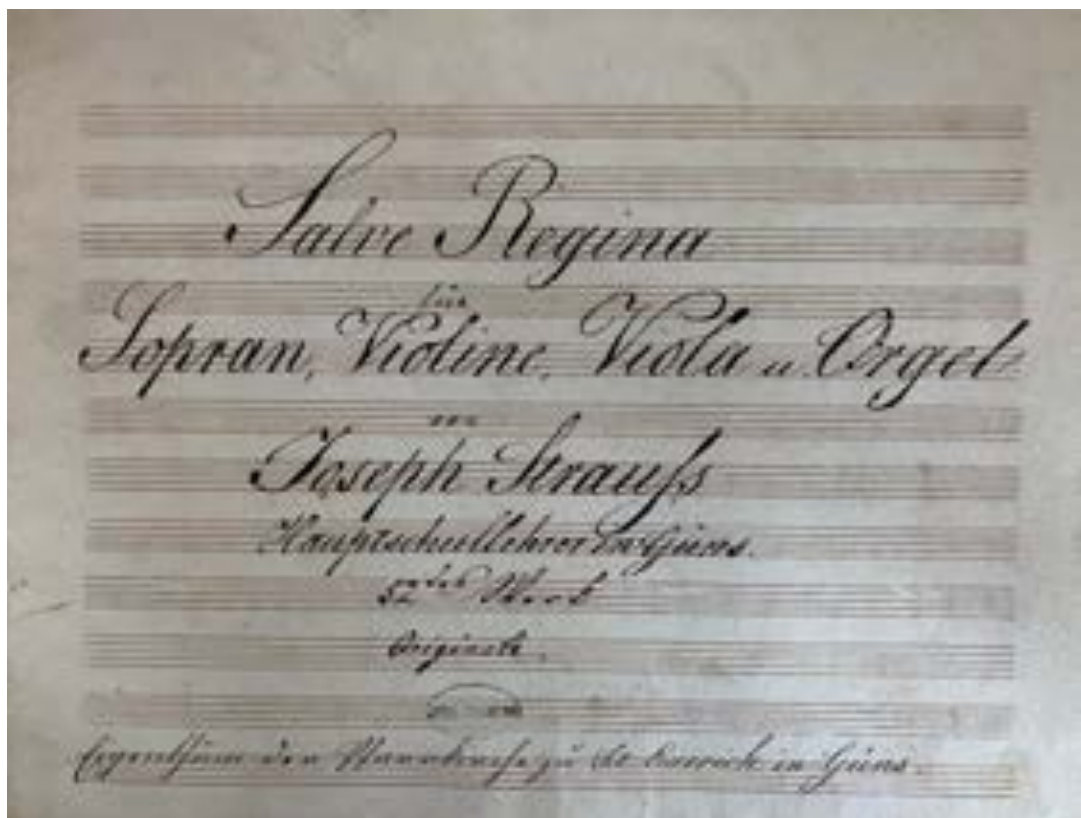 Salve Regina
für
Sopran, Violine, Viola u. Orgel
von
Joseph Strauſs
Hauptschullehrer in Güns.
52tes Werk
Original.
Eigenthum der Pfarrkirche zu St. Emerich in Güns.